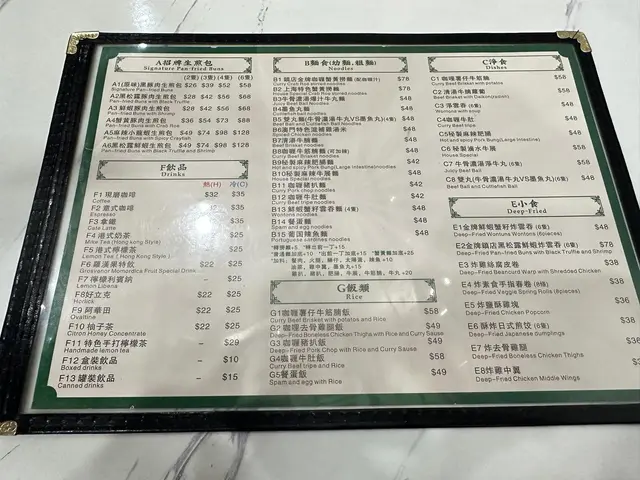 A招牌生煎包
Signature Pan-fried Buns
(2隻) (3隻) (4隻) (6隻)
A1(原味)黑豚肉生煎包 $26 $39 $52 $58
Signature Pan-fried Buns
A2黑松露豚肉生煎包 $28 $42 $56 $68
Pan-fried Buns with Black Truffle
A3 鮮蝦豚肉生煎包 $28 $42 $56 $68
Pan-fried Buns with Shrimp
A4蟹黃豚肉生煎包 $36 $54 $73 $88
Pan-fried Buns with Crab Roe
A5麻辣小龍蝦生煎包 $49 $74 $98 $128
Pan-fried Buns with Spicy Crayfish
A6黑松露鮮蝦生煎包 $49 $74 $98 $128
Pan-fried Buns with Black Truffle and Shrimp
F飲品
Drinks
熱(H) 冷(C)
F1 現磨咖啡 $32 $35
Coffee
F2 意式咖啡 $35
Espresso
F3 拿鐵 $35
Cafe Latte
F4 港式奶茶 $25
Milke Tea (Hong Kong Style)
F5 港式檸檬茶 $25
Lemon Tea (Hong Kong Style)
F6 羅漢果特飲 $22 $25
Grosvenor Momordica Fruit Special Drink
F7 檸檬利賓納 – $25
Lemon Libena
F8好立克 $22 $25
Horlick
F9 阿華田 $22 $25
Ovaltine
F10 柚子茶 $22 $25
Citron Honey Concentrate
F11 特色手打檸檬茶 – $29
Handmade lemon tea
F12 盒裝飲品 – $10
Boxed drinks
F13 罐裝飲品 – $15
Canned drinks
B麵食(幼麵,粗麵)
Noodles
$78
Curry Crab Roe shired Noodles
B2 上海特色蟹黃撈麵 $78
House Special Crab Roe stired noodles
$48
Juicy Beef Ball Noodles
B4墨魚丸麵 $48
Cuttlefish ball Noodles
B5 雙丸麵(牛膏濃湯牛丸VS墨魚丸)(4隻) $48
Beef Ball and Cuttlefish Ball Noodles
B6澳門特色滷水麵雞湯米 $48
Spiced Chicken noodles
B7清湯牛腩麵 $48
Curry Beef Brisket Noodles
B8咖喱牛筋腩麵(可加辣) $48
Curry Beef Brisket noodles
B9秘製麻辣肥腸麵 $42
Hot and spicy Pork Bung(Large Intestine)noodles
B10秘製麻辣牛腸麵 $48
House Special noodles
B11 咖喱豬扒麵 $42
Curry Pork noodles
B12 咖喱牛肚麵 $42
Curry Beef tripe noodles
B13 鮮蝦蟹籽雲吞麵 (4隻) $48
Wontons noodles
B14 餐蛋麵 $48
Spam and egg noodles
B15 葡国辣魚麵 $48
Portuguese sardines noodles
G飯類
Rice
G1咖喱薯仔牛筋腩飯 $58
Curry Beef Brisket with potatos and Rice
G2 咖喱去骨雞腿飯 $49
Deep-Fried Boneless Chicken Thighs with Rice and Curry Sause
G3 咖喱豬扒飯 $49
Deep-Fried Pork Chop with Rice and Curry Sause
G4咖喱牛肚飯 $58
Curry Beef tripe and Rice
G5餐蛋飯 $49
Spam and egg with Rice
C淨食
Dishes
C1 咖喱薯仔牛筋腩 $58
Curry Beef Brisket with potatos
C2 清湯牛腩蘿蔔 $58
Curry Beef Brisket with Daikon(radish)
C3 淨雲吞 (6隻) $48
Wontuns with soup
C4咖喱牛肚 $48
Curry Beef tripe
C5秘製麻辣肥腸 $48
Hot and spicy Pork Bung(Large Intestine)
C6 秘製滷水牛腸 $58
House Special
C7 牛膏濃湯淨牛丸 (6隻) $58
Juicy Beef Ball
C8 雙丸(牛膏濃湯牛丸VS墨魚丸)(6隻) $58
Beef Ball and Cuttlefish Ball
E小食
Deep-Fried
E1金牌鮮蝦蟹籽炸雲吞 (6隻) $48
Deep-Fried Wontuns Wontons (6pieces)
E2金牌鎮店黑松露鮮蝦炸雲吞 (6隻) $78
Deep-Fried Pan-fried Buns with Black Truffle and Shrimp
E3 炸雞絲腐皮卷 $48
Deep-Fried Beancurd Warp with Shredded Chicken
E4 炸素食手指春卷 (8條) $38
Deep-Fried Vaggie Spring Rolls (8pieces)
E5 炸鹽酥雞塊
Deep-Fried Chicken Popcorn
E6 酥炸日式煎餃 (6隻) $38
Deep-Fried Japanese Dumplings
E7 炸去骨雞腿
Deep-Fried Boneless Chicken Thighs
E8炸雞中翼
Deep-Fried Chicken Middle Wings